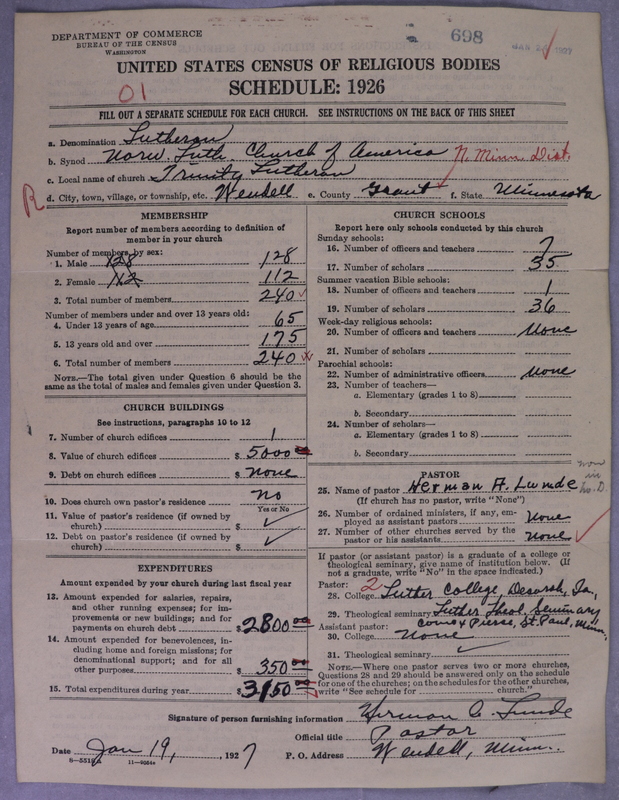 DEPARTMENT OF COMMERCE
BUREAU OF THE CENSUS
WASHINGTON
698
UNITED STATES CENSUS OF RELIGIOUS BODIES
SCHEDULE: 1926
01
FILL OUT A SEPARATE SCHEDULE FOR EACH CHURCH. SEE INSTRUCTIONS ON THE BACK OF THIS SHEET
a. Denomination Lutheran
b. Synod Norw. Luth. Church of America N. Minn. Dist.
c. Local name of church Trinity Lutheran
R
d. City, town, village, or township, etc. Wendell e. County Grant f. State Minnesota
MEMBERSHIP
Report number of members according to definition of member in your church
Number of members by sex:
1. Male 128 128
2. Female 112
3. Total number of members 240
Number of members under and over 13 years old:
4. Under 13 years of age 65
5. 13 years old and over 175
6. Total number of members 240
NOTE.—The total given under Question 6 should be the same as the total of males and females given under Question 3.
CHURCH BUILDINGS
See instructions, paragraphs 10 to 12
7. Number of church edifices 1
8. Value of church edifices $ 5000
9. Debt on church edifices $ None
10. Does church own pastor's residence No
Yes or No
11. Value of pastor's residence (if owned by church) $ ✓
12. Debt on pastor's residence (if owned by church) $ ✓
EXPENDITURES
Amount expended by your church during last fiscal year
13. Amount expended for salaries, repairs, and other running expenses; for improvements or new buildings; and for payments on church debt $ 2800 00
14. Amount expended for benevolences, including home and foreign missions; for denominational support; and for all other purposes $ 350 00
15. Total expenditures during year $ 3150 00
CHURCH SCHOOLS
Report here only schools conducted by this church
Sunday schools:
16. Number of officers and teachers 7
17. Number of scholars 35
Summer vacation Bible schools:
18. Number of officers and teachers 1
19. Number of scholars 36
Week-day religious schools:
20. Number of officers and teachers None
21. Number of scholars
Parochial schools:
22. Number of administrative officers None
23. Number of teachers—
a. Elementary (grades 1 to 8)
b. Secondary
24. Number of scholars—
a. Elementary (grades 1 to 8)
b. Secondary
PASTOR
25. Name of pastor Herman A. Lunde
(If church has no pastor, write "None")
26. Number of ordained ministers, if any, employed as assistant pastors None
27. Number of other churches served by the pastor or his assistants None
If pastor (or assistant pastor) is a graduate of a college or theological seminary, give name of institution below. (If not a graduate, write "No" in the space indicated.)
Pastor: 2
28. College Luther College, Decorah, Ia,
29. Theological seminary Luther Theol. Seminary
Assistant pastor: Como & Pierce, St. Paul, Minn.
30. College None
31. Theological seminary ✓
NOTE.—Where one pastor serves two or more churches, Questions 28 and 29 should be answered only on the schedule for one of the churches; on the schedules for the other churches, write "See schedule for church."
Signature of person furnishing information Herman A. Lunde
Official title Pastor
Date Jan 19, , 1927 P. O. Address Wendell, Minn.